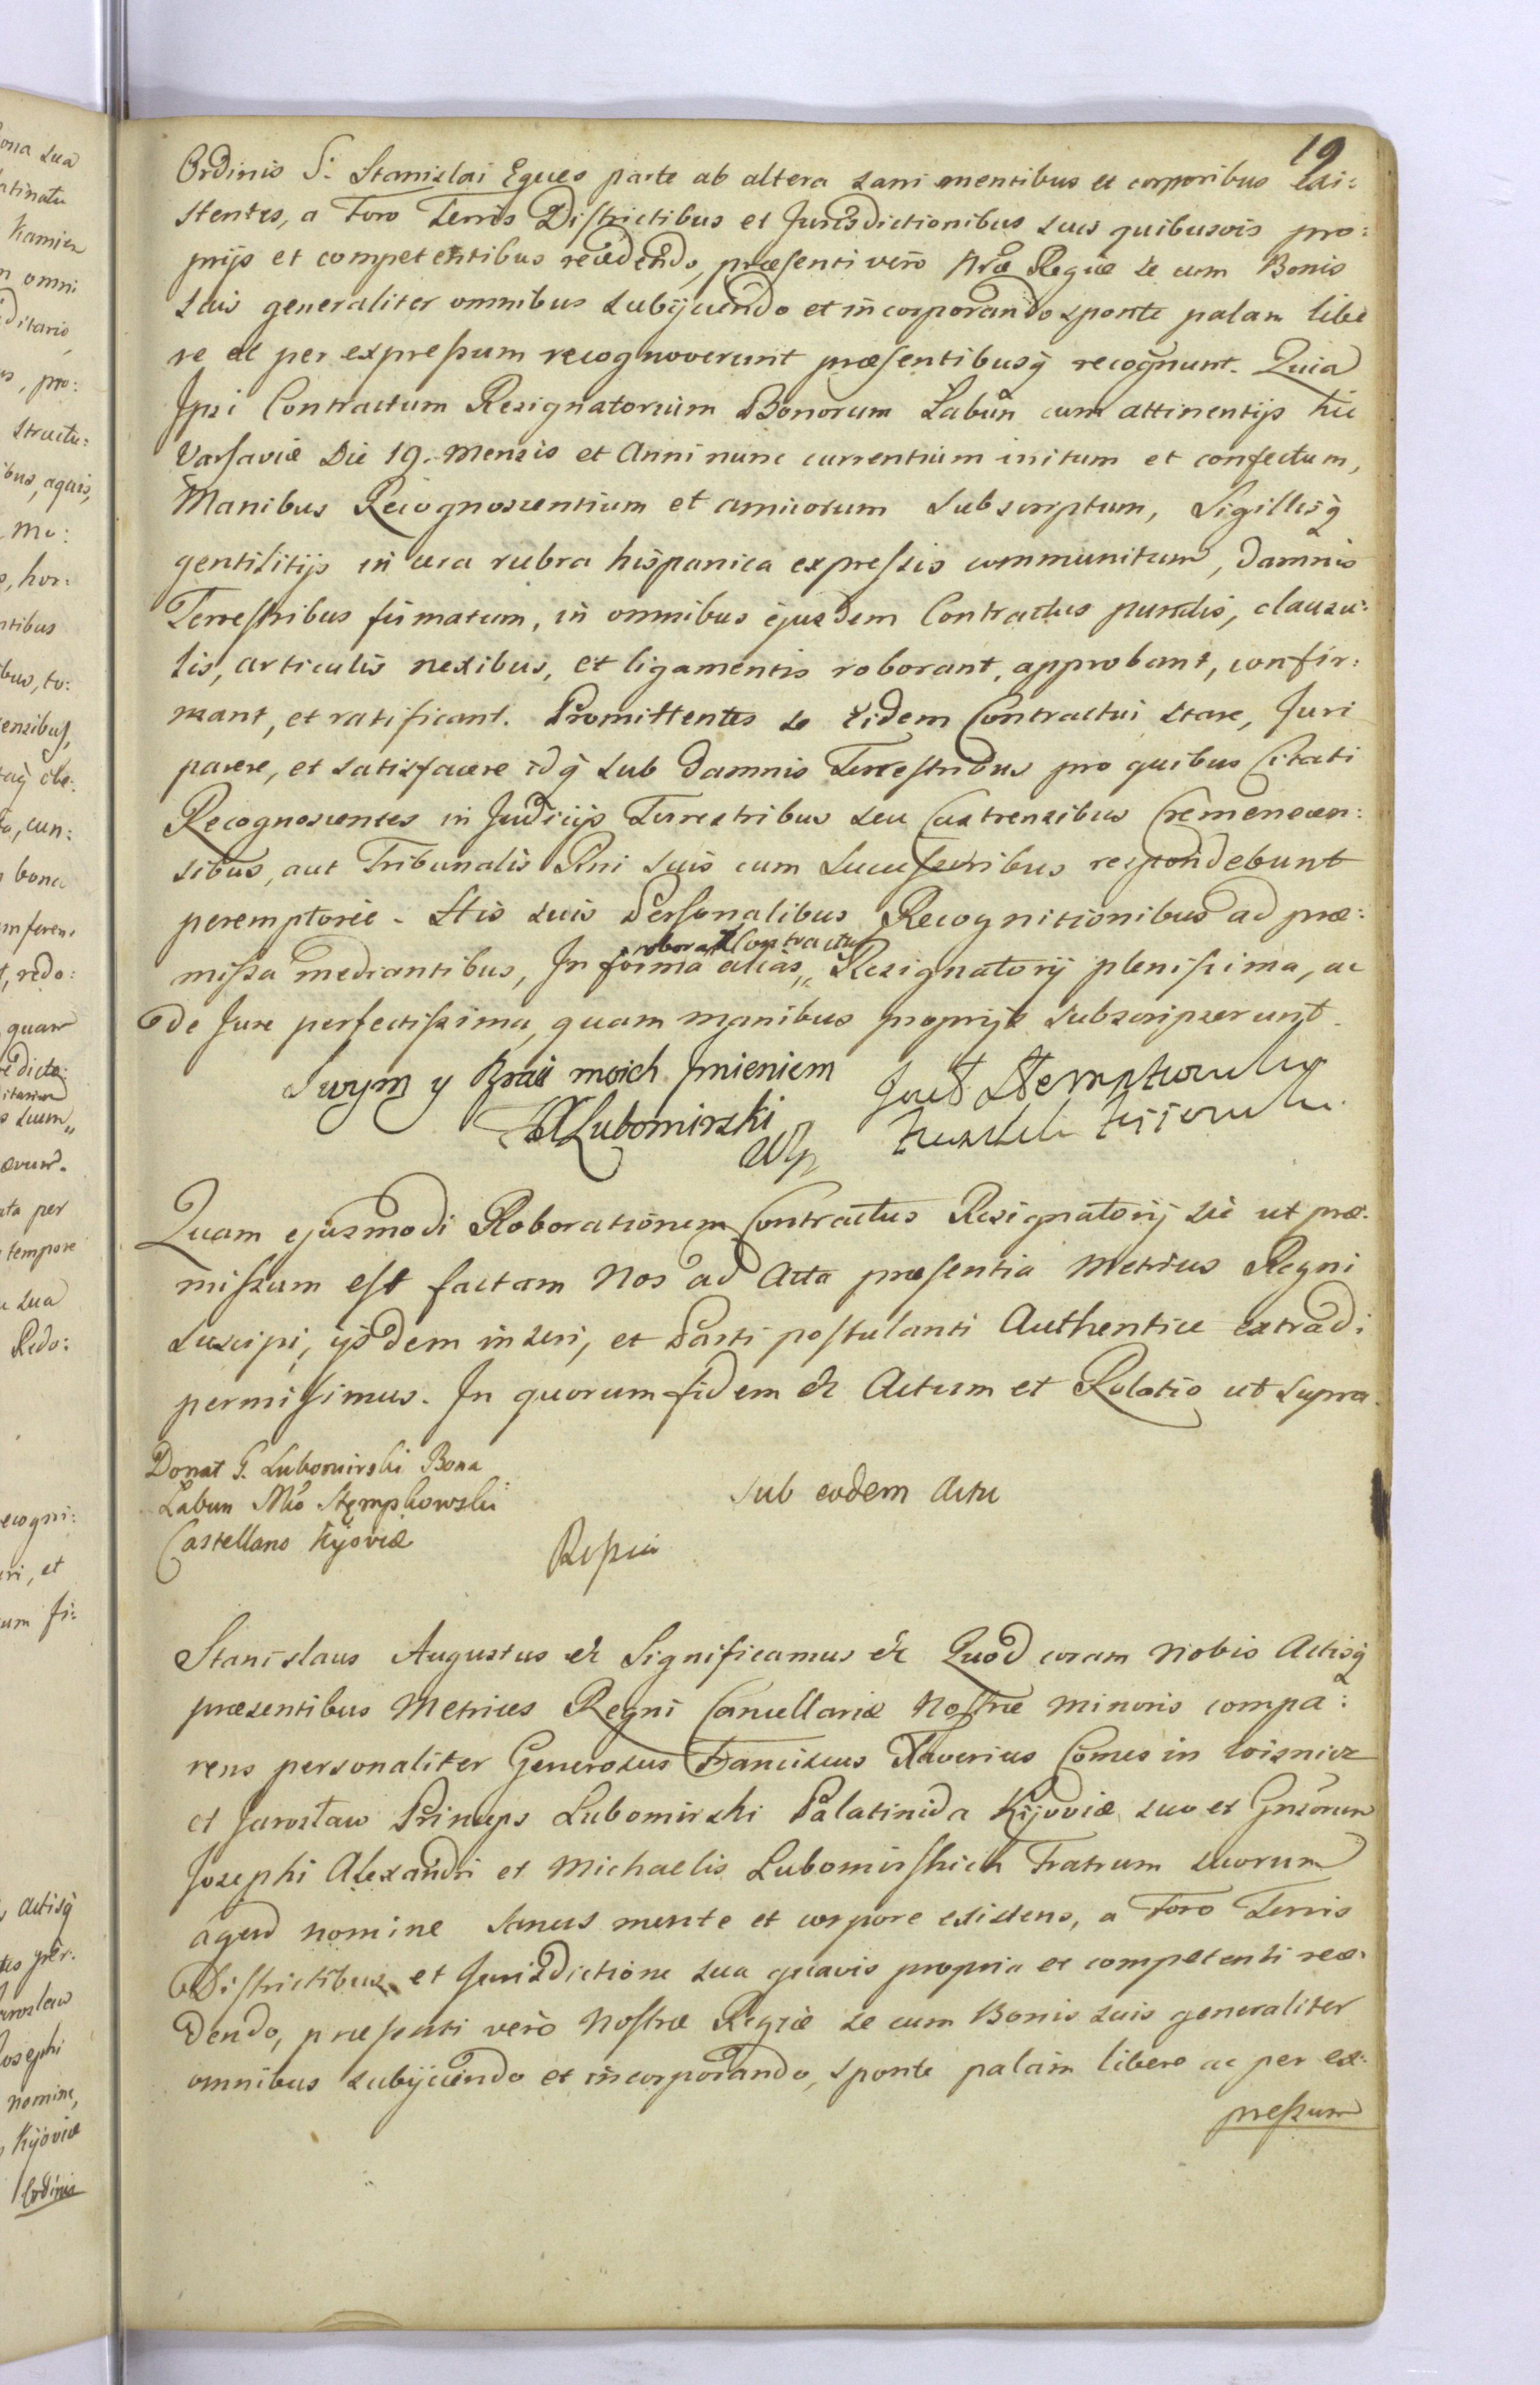 19
Ordinis S: Stanislai Eques parte ab altera sani mentibus et corporibus exi:
stentes, a Foro Terris Districtibus et Jurisdictionibus suis quibusvis pro:
prijs et competentibus recedendo, præsenti vero Nræ Regiæ se cum Bonis
suis generaliter omnibus subijciendo et incorporando sponte palam libe
re et per expressum recognoverunt præsentibusq recognunt. Quia
Ipsi Contractum Resignatorium Bonorum Łabun cum attinentijs hic
Varsaviæ Die 19. Mensis et Anni nunc currentium initum et confectum,
Manibus Recognoscentium et amicorum subscriptum, Sigillisq
gentilitijs in cera rubra hispanica expressis communitum, damnis
Terrestribus firmatum, in omnibus ejusdem Contractus punctis, clausu:
lis, articulis nexibus, et ligamentis roborant, approbant, confir:
mant, et ratificant. Promittentes se eidem Contractui stare, Juri
parere, et satisfacere idq sub damnis Terrestribus pro quibus Citati
Recognoscentes in Judicijs Terrestribus seu Castrensibus Cremenecen:
sibus, aut Tribunalis Rni suis cum Successoribus respondebunt
peremptorie. Stis suis Personalibus Recognitionibus ad præ:
roborat Contractus
missa mediantibus, In forma alias „ Resignatorij plenissima, ac
de Jure perfectissima, quam manibus proprijs subscripserunt.
Swym y Braci moich Jmieniem
Józef Stempkowski
FXLubomirski
mp Kasztelan Kijowski
Quam ejusmodi Roborationem Contractus Resignatorij sic ut præ:
missum est factam Nos ad Acta præsentia Metrices Regni
suscipi, ijsdem inseri, et Parti postulanti Authentice extradi
permisimus. In quorum fidem &c Actum et Relatio ut supra.
Donat G. Lubomirski Bona
Łabun Mco Stempkowski
Castellano Kijoviæ
sub eodem Actu
Stanislaus Augustus &c Significamus &c Quod coram Nobis Actisq
præsentibus Metrices Regni Cancellariæ Nostræ Minoris compa:
rens personaliter Generosus Franciscus Xaverius Comes in Wisnicz
et Jarosław Princeps Lubomirski Palatinida Kijoviæ suo et Gnsorum
Josephi Alexandri et Michaelis Lubomirskich Fratrum suorum
agens nomine sanus mente et corpore existens, a Foro Terris
Districtibus et Jurisdictione sua quavis propria et competenti rece:
dendo, præsenti vero Nostræ Regiæ se cum Bonis suis generaliter
omnibus subijciendo et incorporando, sponte palam libere ac per ex:
pressum